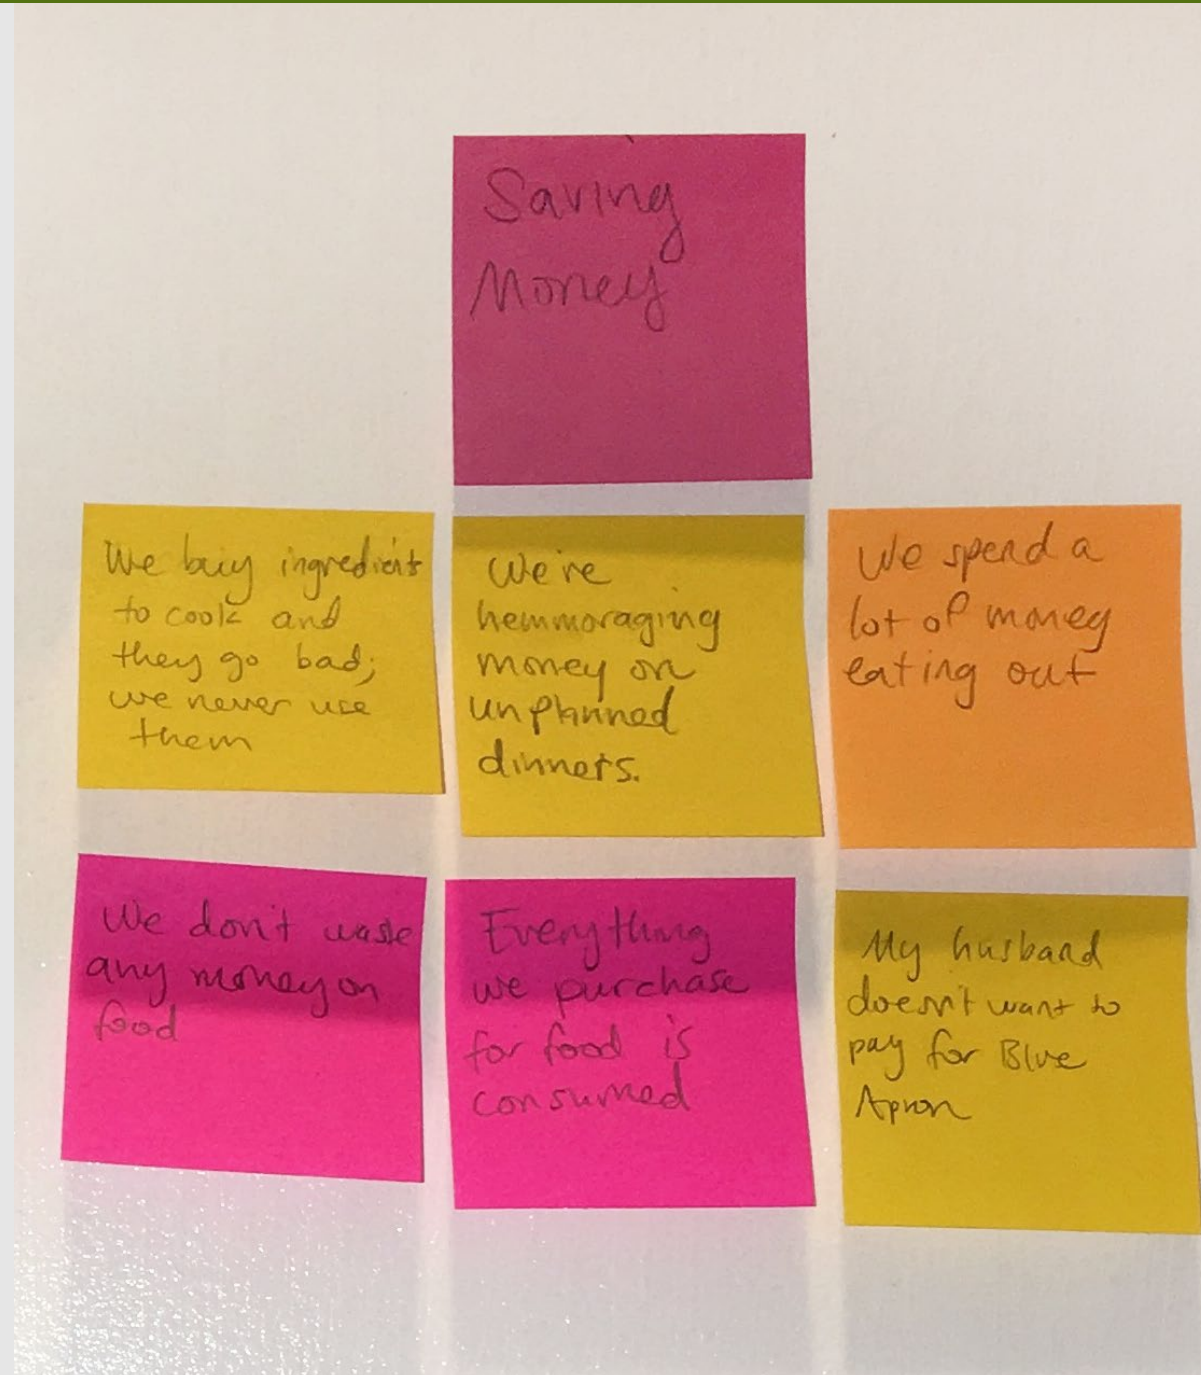 Saving
Money
We buy ingredients
to cook and
they go bad;
we never use
them
We're
hemmoraging
money on
unplanned
dinners.
We spend a
lot of money
eating out
We don't waste
any money on
food
Everything
we purchase
for food is
consumed
My husband
doesn't want to
pay for Blue
Apron